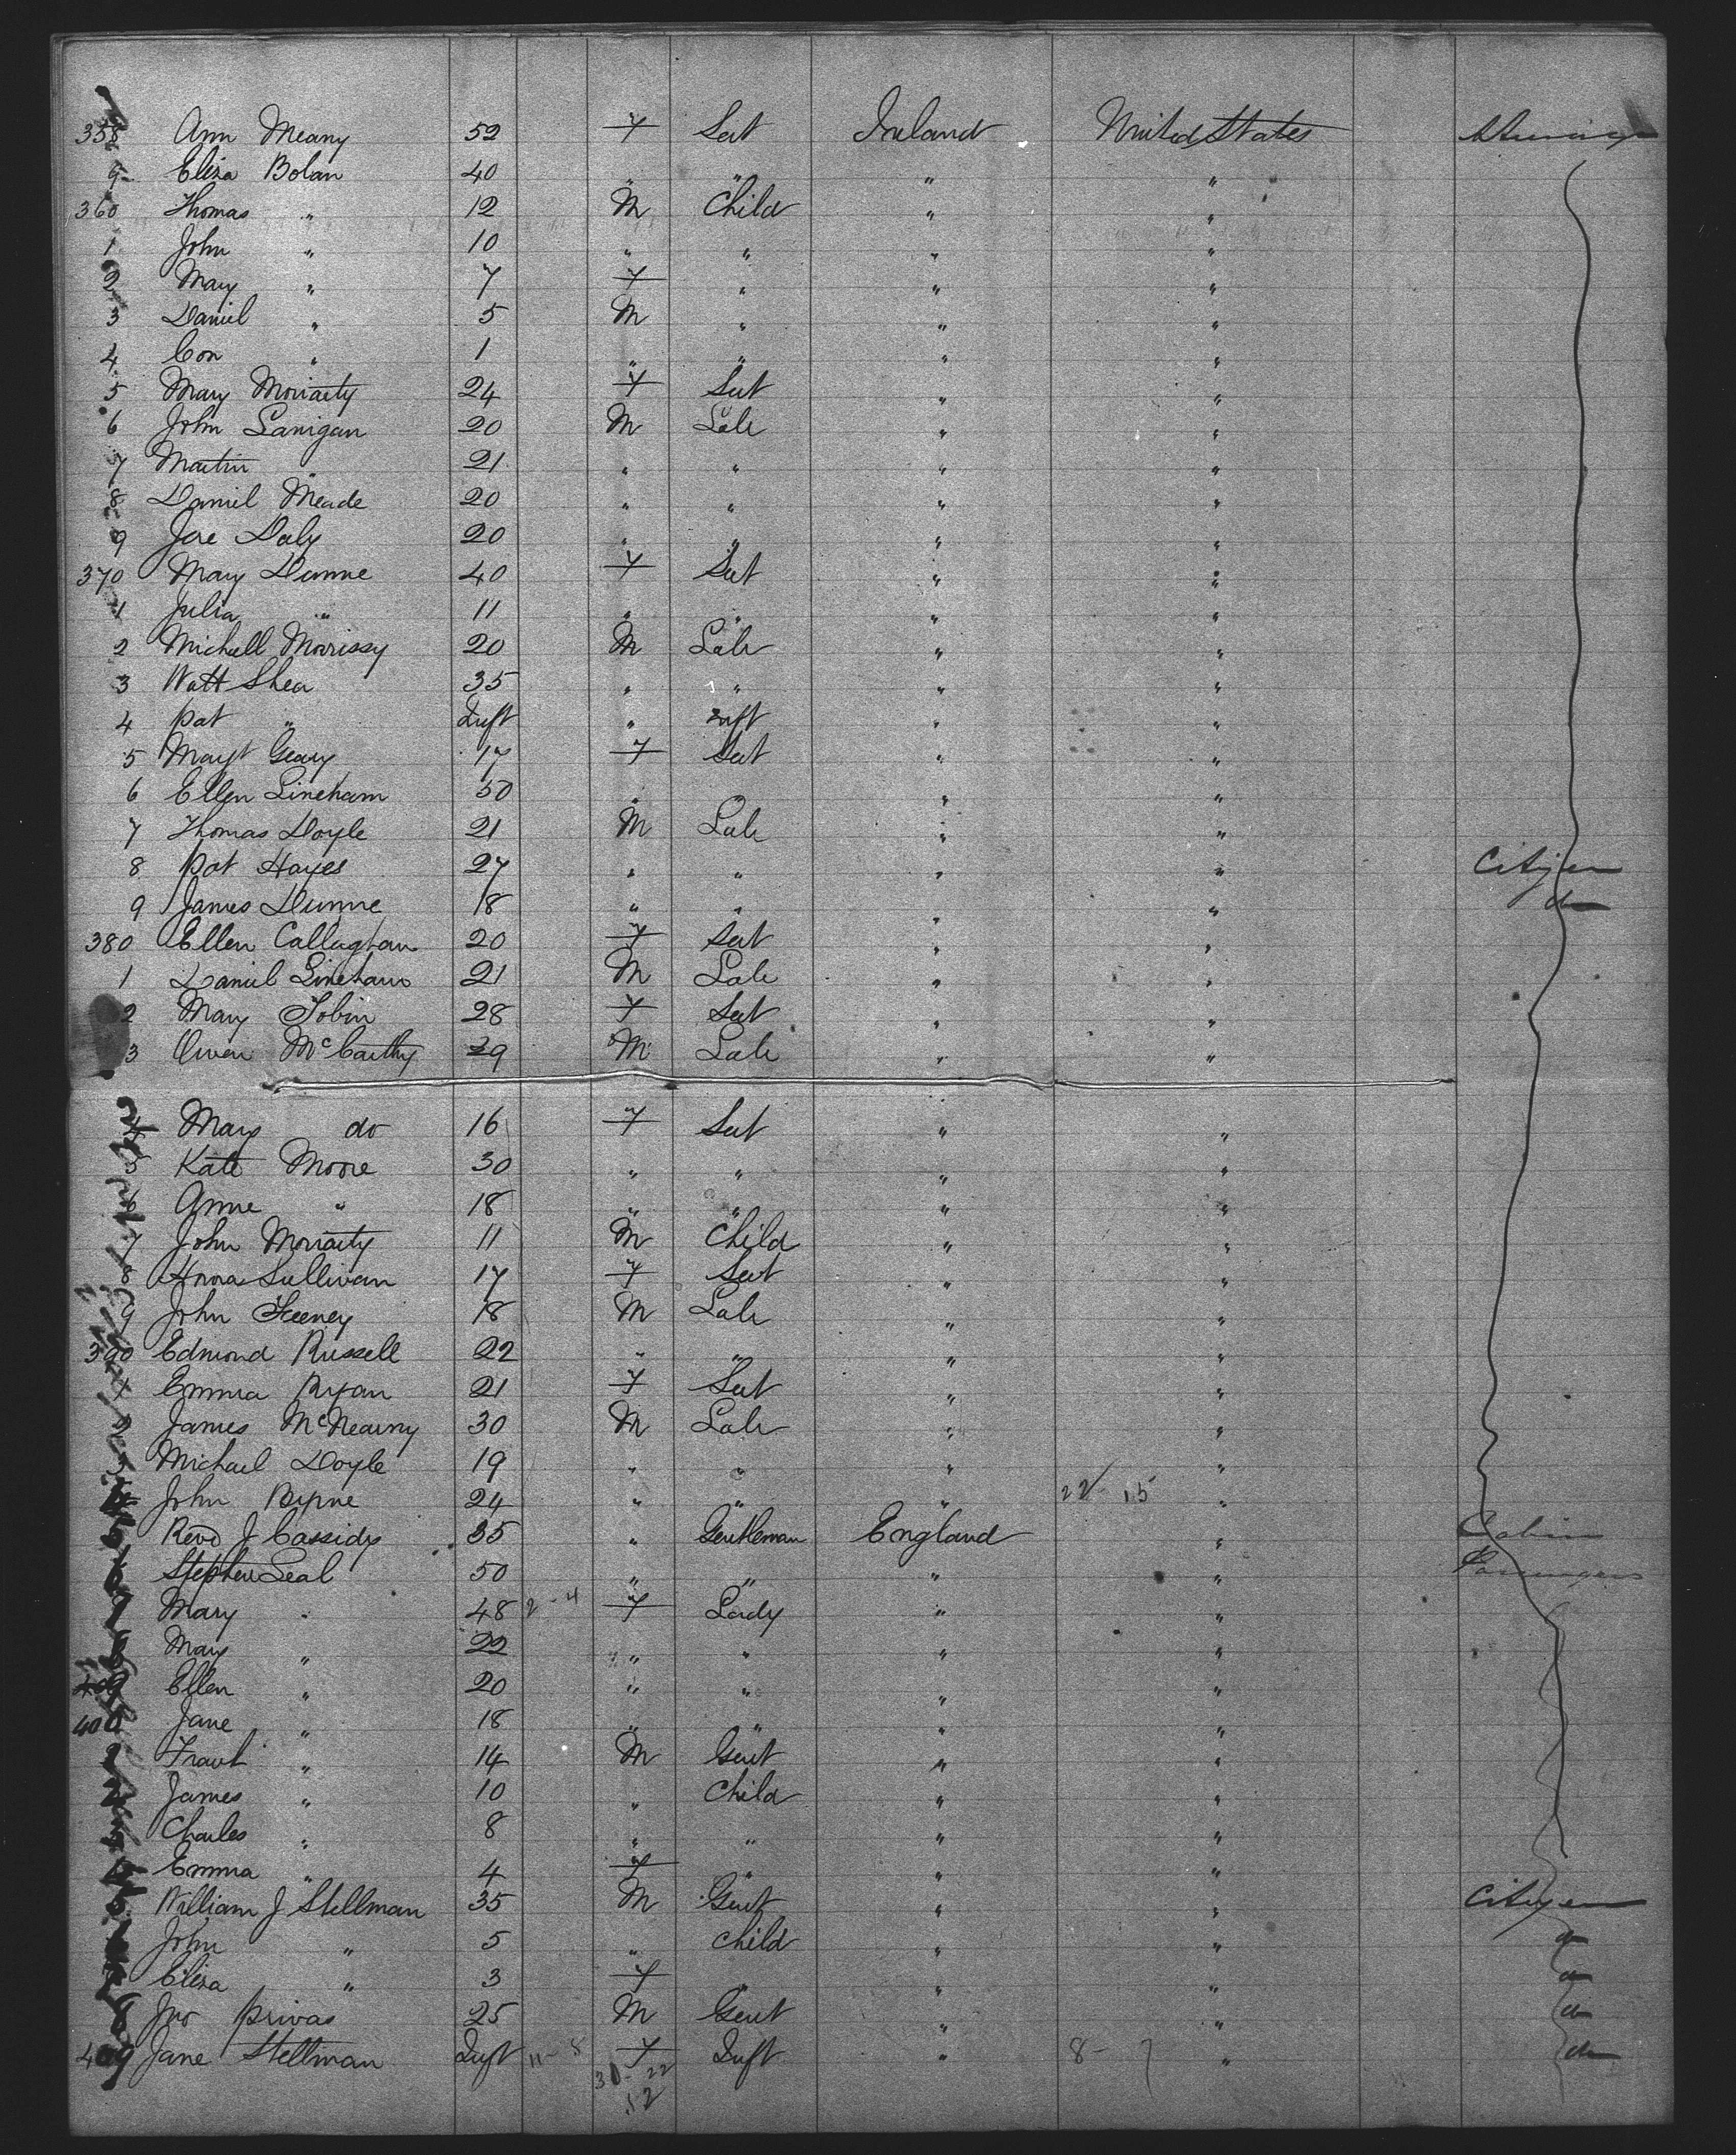 358 Ann Meany 52 F Sert Ireland United States Steerage
9 Eliza Bolan 40 " " " "
360 Thomas " 12 M Child " "
1 John " 10 " " " "
2 Mary " 7 F " " "
3 Daniel " 5 M " " "
4 Con " 1 " " " "
5 Mary Moriarty 24 F Sert " "
6 John Lanigan 20 M Labr " "
7 Martin " 21 " " " "
8 Daniel Meade 20 " " " "
9 Jere Daly 20 " " " "
370 Mary Dunne 40 F Sert " "
1 Julia " 11 " " " "
2 Michell Morrissy 20 M Labr " "
3 Watt Shea 35 " " " "
4 Pat " Inft " Inft " "
5 Margt Geary 17 F Sert " "
6 Ellen Lineham 50 " " " "
7 Thomas Doyle 21 M Labr " "
8 Pat Hayes 27 " " " " Citizen
9 James Dunne 18 " " " " do
380 Ellen Callaghan 20 F Sert " "
1 Daniel Linehan 21 M Labr " "
2 Mary Tobin 28 F Sert " "
3 Owen McCarthy 29 M Labr " "
4 Mary do 16 F Sert " "
5 Kate Moore 30 " " " "
6 Anne " 18 " " " "
7 John Moriarty 11 M Child " "
8 Hnora Sullivan 17 F Sert " "
9 John Feeney 18 M Labr " "
390 Edmond Russell 22 " " " "
1 Emma Ryan 21 F Sert " "
2 James McNearny 30 M Labr " "
3 Michael Doyle 19 " " " "
4 John Byrne 24 " " " 22 15 "
5 Revd J Cassidy 35 " Gentleman England " Cabin
6 Stephen Seal 50 " " " " Passengers
7 Mary " 48 2-4 F Lady " "
8 Mary " 22 " " " "
9 Ellen " 20 " " " "
400 Jane " 18 " " " "
Frank " 14 M Gent " "
2 James " 10 " Child " "
3 Charles " 8 " " " "
4 Emma " 4 F " " "
5 William J Stellman 35 M Gent " " Citizen
John " 5 " Child " " do
Eliza " 3 F " " " do
8 Jno Privas 25 M Gent " " do
409 Jane Stellman Inft 11-8 F Inft " 8-7 " do
30-22
12